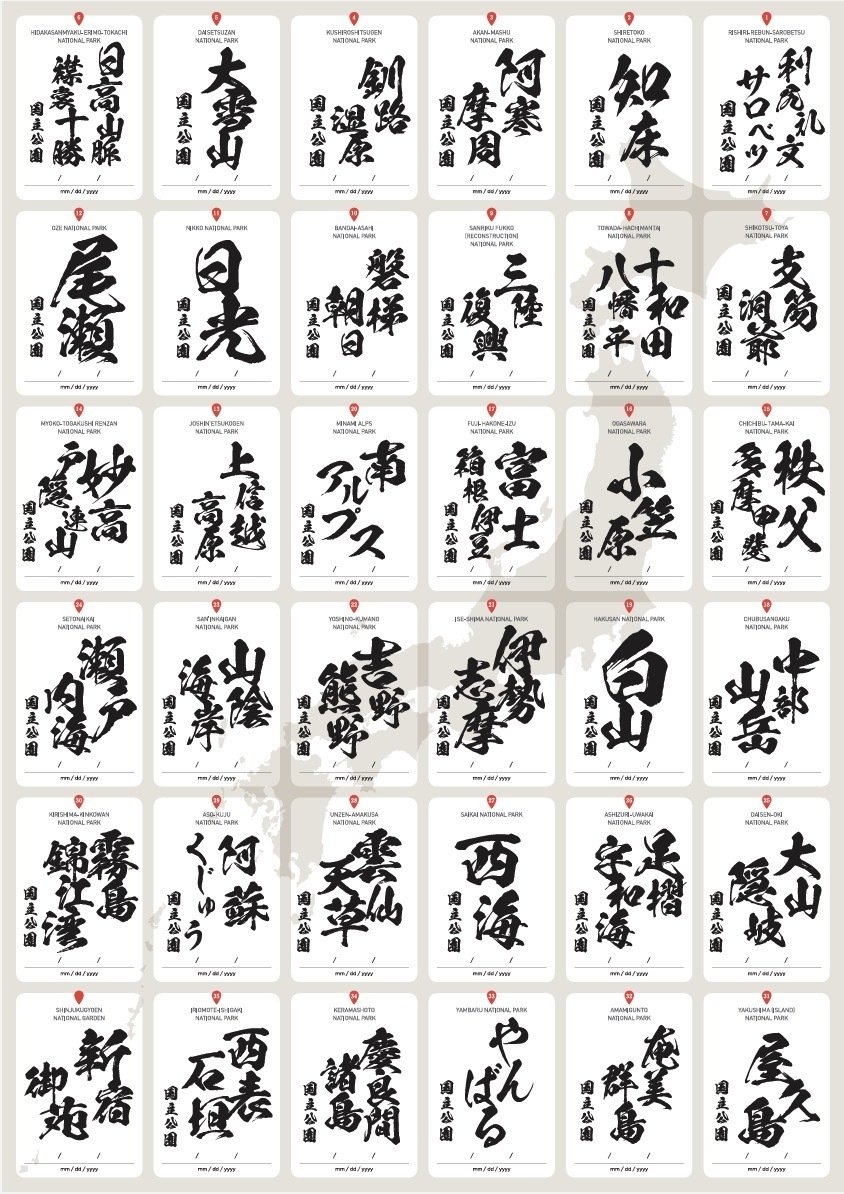 1
RISHIRI-REBUN-SAROBETSU
NATIONAL PARK
利尻礼文
サロベツ
国立公園
/ /
mm / dd / yyyy
2
SHIRETOKO
NATIONAL PARK
知床
国立公園
/ /
mm / dd / yyyy
3
AKAN-MASHU
NATIONAL PARK
阿寒
摩周
国立公園
/ /
mm / dd / yyyy
4
KUSHIROSHITSUGEN
NATIONAL PARK
釧路
湿原
国立公園
/ /
mm / dd / yyyy
5
DAISETSUZAN
NATIONAL PARK
大雪山
国立公園
/ /
mm / dd / yyyy
6
HIDAKASANMYAKU-ERIMO-TOKACHI
NATIONAL PARK
日高山脈
襟裳十勝
国立公園
/ /
mm / dd / yyyy
7
SHIKOTSU-TOYA
NATIONAL PARK
支笏
洞爺
国立公園
/ /
mm / dd / yyyy
8
TOWADA-HACHIMANTAI
NATIONAL PARK
十和田
八幡平
国立公園
/ /
mm / dd / yyyy
9
SANRIKU FUKKO
(RECONSTRUCTION)
NATIONAL PARK
三陸
復興
国立公園
/ /
mm / dd / yyyy
10
BANDAI-ASAHI
NATIONAL PARK
磐梯
朝日
国立公園
/ /
mm / dd / yyyy
11
NIKKO NATIONAL PARK
日光
国立公園
/ /
mm / dd / yyyy
12
OZE NATIONAL PARK
尾瀬
国立公園
/ /
mm / dd / yyyy
15
CHICHIBU-TAMA-KAI
NATIONAL PARK
秩父
多摩甲斐
国立公園
/ /
mm / dd / yyyy
16
OGASAWARA
NATIONAL PARK
小笠原
国立公園
/ /
mm / dd / yyyy
17
FUJI-HAKONE-IZU
NATIONAL PARK
富士
箱根伊豆
国立公園
/ /
mm / dd / yyyy
20
MINAMI ALPS
NATIONAL PARK
南
アルプス
国立公園
/ /
mm / dd / yyyy
13
JOSHIN'ETSUKOGEN
NATIONAL PARK
上信越
高原
国立公園
/ /
mm / dd / yyyy
14
MYOKO-TOGAKUSHI RENZAN
NATIONAL PARK
妙高
戸隠連山
国立公園
/ /
mm / dd / yyyy
18
CHUBUSANGAKU
NATIONAL PARK
中部
山岳
国立公園
/ /
mm / dd / yyyy
19
HAKUSAN NATIONAL PARK
白山
国立公園
/ /
mm / dd / yyyy
21
ISE-SHIMA NATIONAL PARK
伊勢
志摩
国立公園
/ /
mm / dd / yyyy
22
YOSHINO-KUMANO
NATIONAL PARK
吉野
熊野
国立公園
/ /
mm / dd / yyyy
23
SAN'INKAIGAN
NATIONAL PARK
山陰
海岸
国立公園
/ /
mm / dd / yyyy
24
SETONAIKAI
NATIONAL PARK
瀬戸
内海
国立公園
/ /
mm / dd / yyyy
25
DAISEN-OKI
NATIONAL PARK
大山
隠岐
国立公園
/ /
mm / dd / yyyy
26
ASHIZURI-UWAKAI
NATIONAL PARK
足摺
宇和海
国立公園
/ /
mm / dd / yyyy
27
SAIKAI NATIONAL PARK
西海
国立公園
/ /
mm / dd / yyyy
28
UNZEN-AMAKUSA
NATIONAL PARK
雲仙
天草
国立公園
/ /
mm / dd / yyyy
29
ASO-KUJU
NATIONAL PARK
阿蘇
くじゅう
国立公園
/ /
mm / dd / yyyy
30
KIRISHIMA-KINKOWAN
NATIONAL PARK
霧島
錦江湾
国立公園
/ /
mm / dd / yyyy
31
YAKUSHIMA (ISLAND)
NATIONAL PARK
屋久島
国立公園
/ /
mm / dd / yyyy
32
AMAMIGUNTO
NATIONAL PARK
奄美
群島
国立公園
/ /
mm / dd / yyyy
33
YAMBARU NATIONAL PARK
やんばる
国立公園
/ /
mm / dd / yyyy
34
KERAMASHOTO
NATIONAL PARK
慶良間
諸島
国立公園
/ /
mm / dd / yyyy
35
IRIOMOTE-ISHIGAKI
NATIONAL PARK
西表
石垣
国立公園
/ /
mm / dd / yyyy
SHINJUKUGYOEN
NATIONAL GARDEN
新宿
御苑
/ /
mm / dd / yyyy